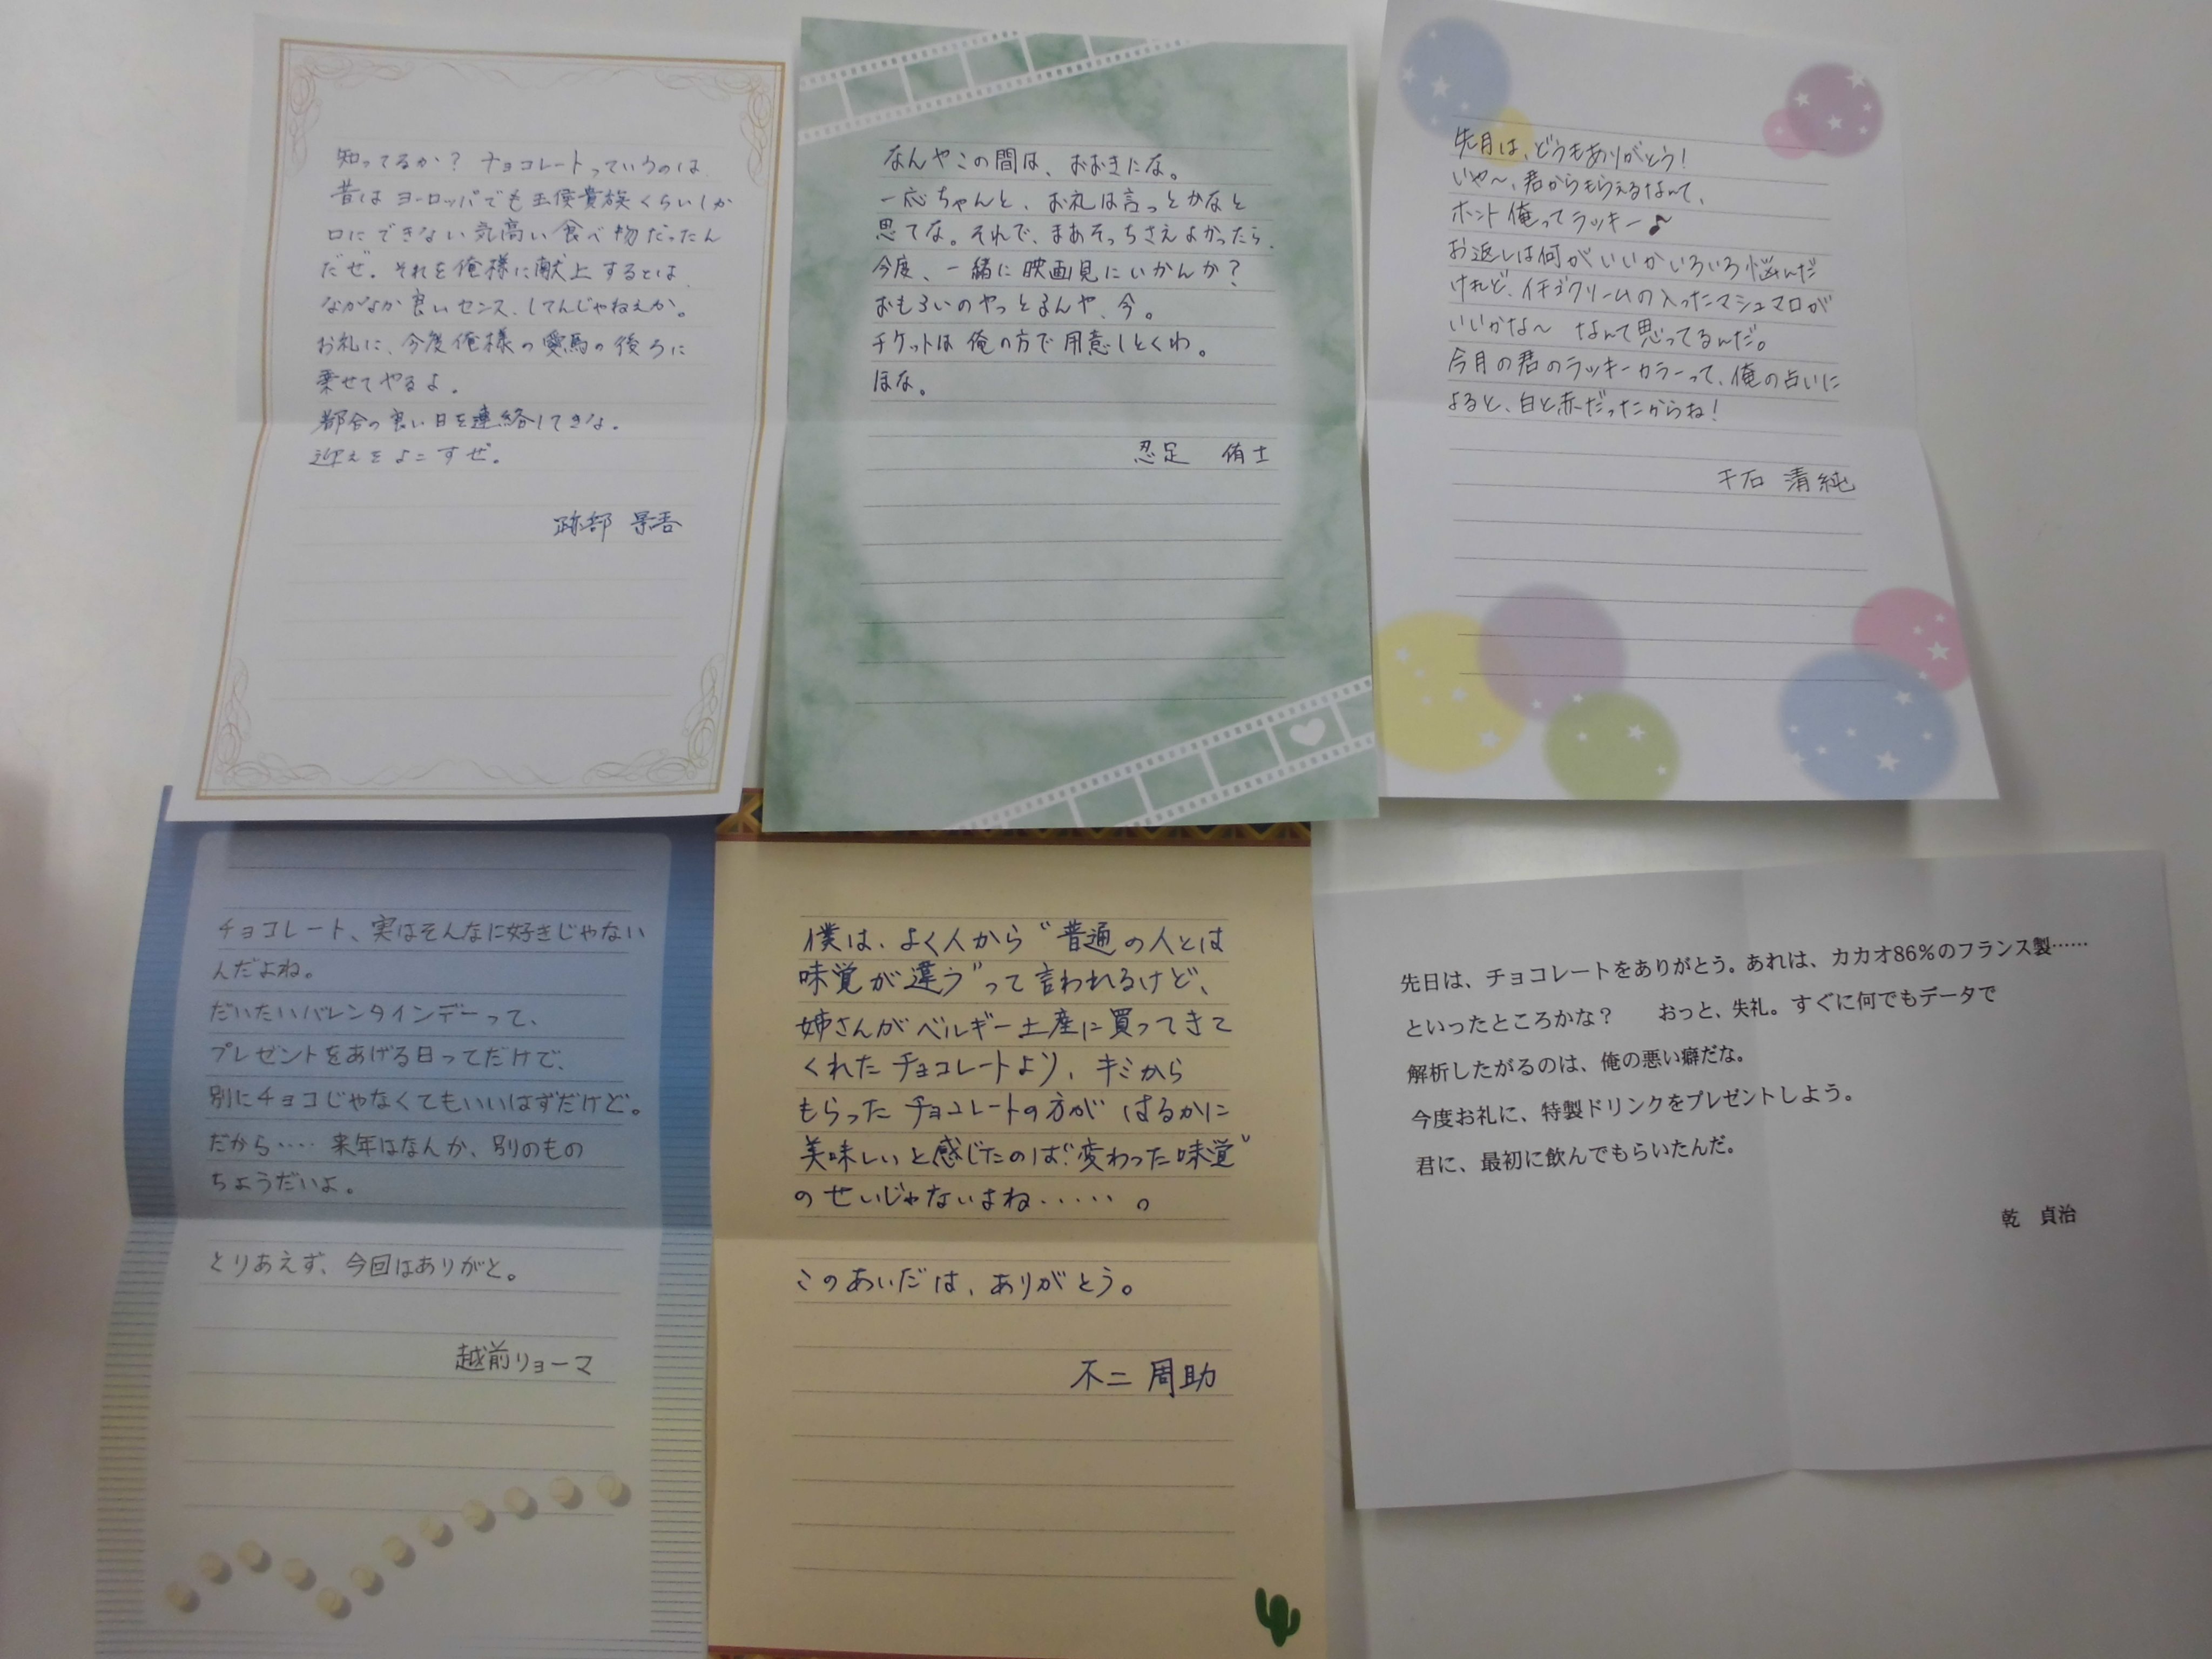 知ってるか？ チョコレートっていうのは、
昔は ヨーロッパでも 王侯貴族くらいしか
口にできない 気高い食べ物だったん
だぜ。それを俺様に献上するとは、
なかなか良いセンス、してんじゃねえか。
お礼に、今度俺様の愛馬の後ろに
乗せてやるよ。
都合の良い日を連絡してきな。
迎えをよこすぜ。
跡部 景吾
なんやこの間は、おおきにな。
一応ちゃんと、お礼は言っとかなと
思てな。それで、まあそっちさえよかったら、
今度、一緒に映画見にいかんか？
おもろいのやっとるんや、今。
チケットは俺の方で用意しとくわ。
ほな。
忍足 侑士
先月は、どうもありがとう！
いや～、君からもらえるなんて、
ホント俺ってラッキー♪
お返しは何がいいかいろいろ悩んだ
けれど、イチゴクリームの入ったマシュマロが
いいかな～ なんて思ってるんだ。
今月の君のラッキーカラーって、俺の占いに
よると、白と赤だったからね！
千石 清純
チョコレート、実はそんなに好きじゃない
んだよね。
だいたいバレンタインデーって、
プレゼントをあげる日ってだけで、
別にチョコじゃなくてもいいはずだけど。
だから‥‥ 来年はなんか、別のもの
ちょうだいよ。
とりあえず、今回はありがと。
越前リョーマ
僕は、よく人から“普通の人とは
味覚が違う”って言われるけど、
姉さんがベルギー土産に買ってきて
くれたチョコレートより、キミから
もらったチョコレートの方が はるかに
美味しいと感じたのは“変わった味覚”
のせいじゃないよね‥‥‥。
このあいだは、ありがとう。
不二 周助
先日は、チョコレートをありがとう。あれは、カカオ86％のフランス製……
といったところかな？ おっと、失礼。すぐに何でもデータで
解析したがるのは、俺の悪い癖だな。
今度お礼に、特製ドリンクをプレゼントしよう。
君に、最初に飲んでもらいたんだ。
乾 貞治